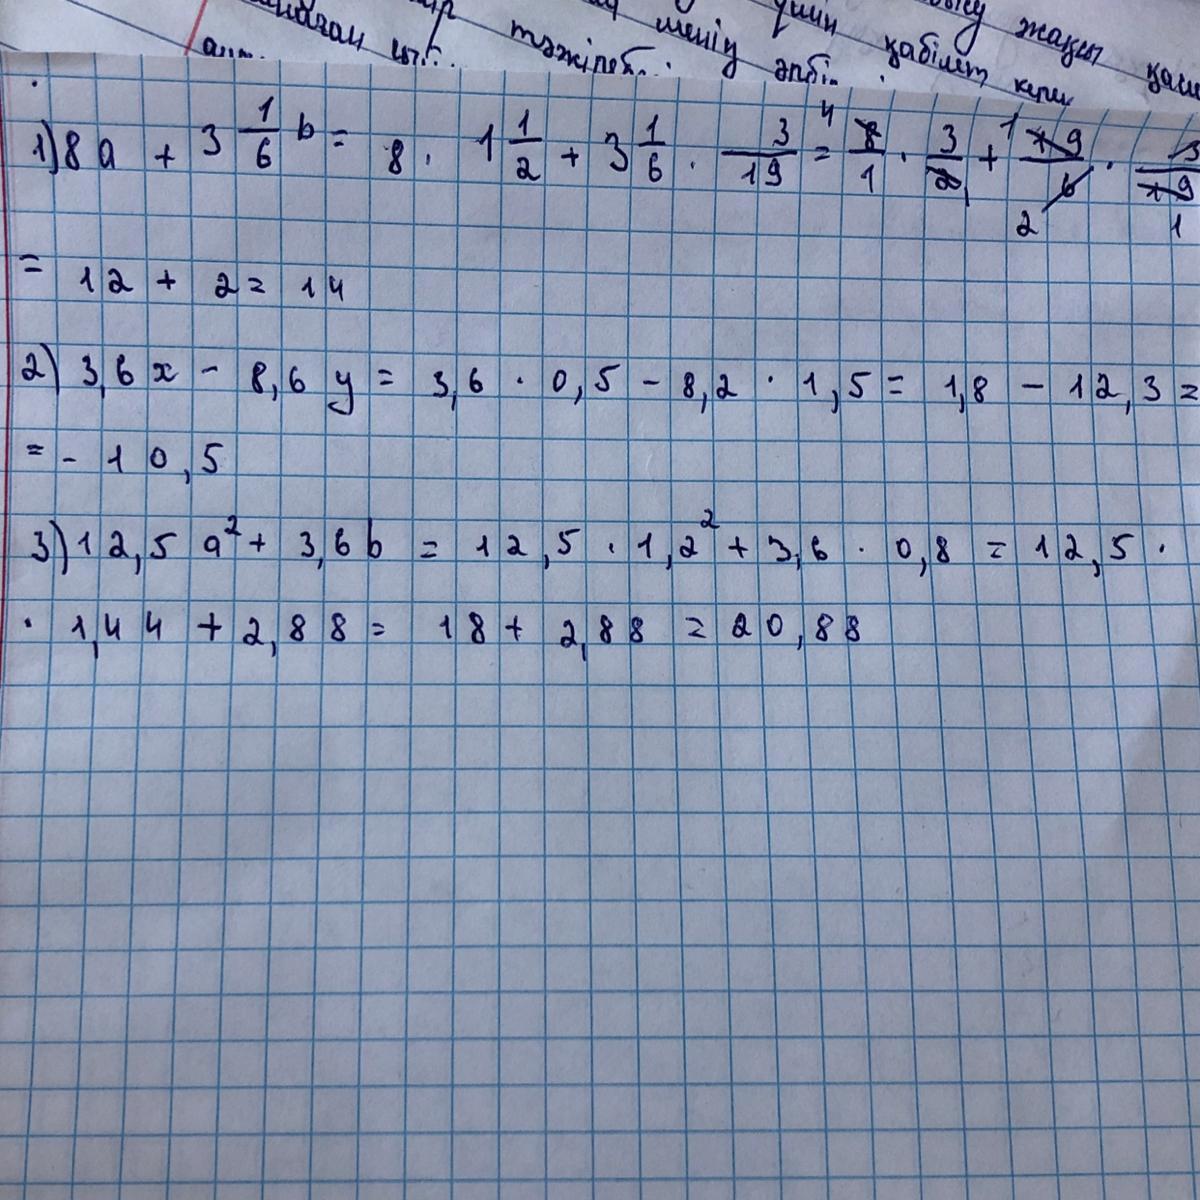 жақсы
үшін қабілет керек
менің әпбі..
тәжірбе..
1) 8a + 3 1/6 b = 8 · 1 1/2 + 3 1/6 · 3/19 = 4 8/1 · 3/2 1 + 1 19/6 2 · 3/19 1
= 12 + 2 = 14
2) 3,6x - 8,6y = 3,6 · 0,5 - 8,2 · 1,5 = 1,8 - 12,3 =
= - 10,5
3) 12,5 a² + 3,6b = 12,5 · 1,2² + 3,6 · 0,8 = 12,5 ·
· 1,44 + 2,88 = 18 + 2,88 = 20,88